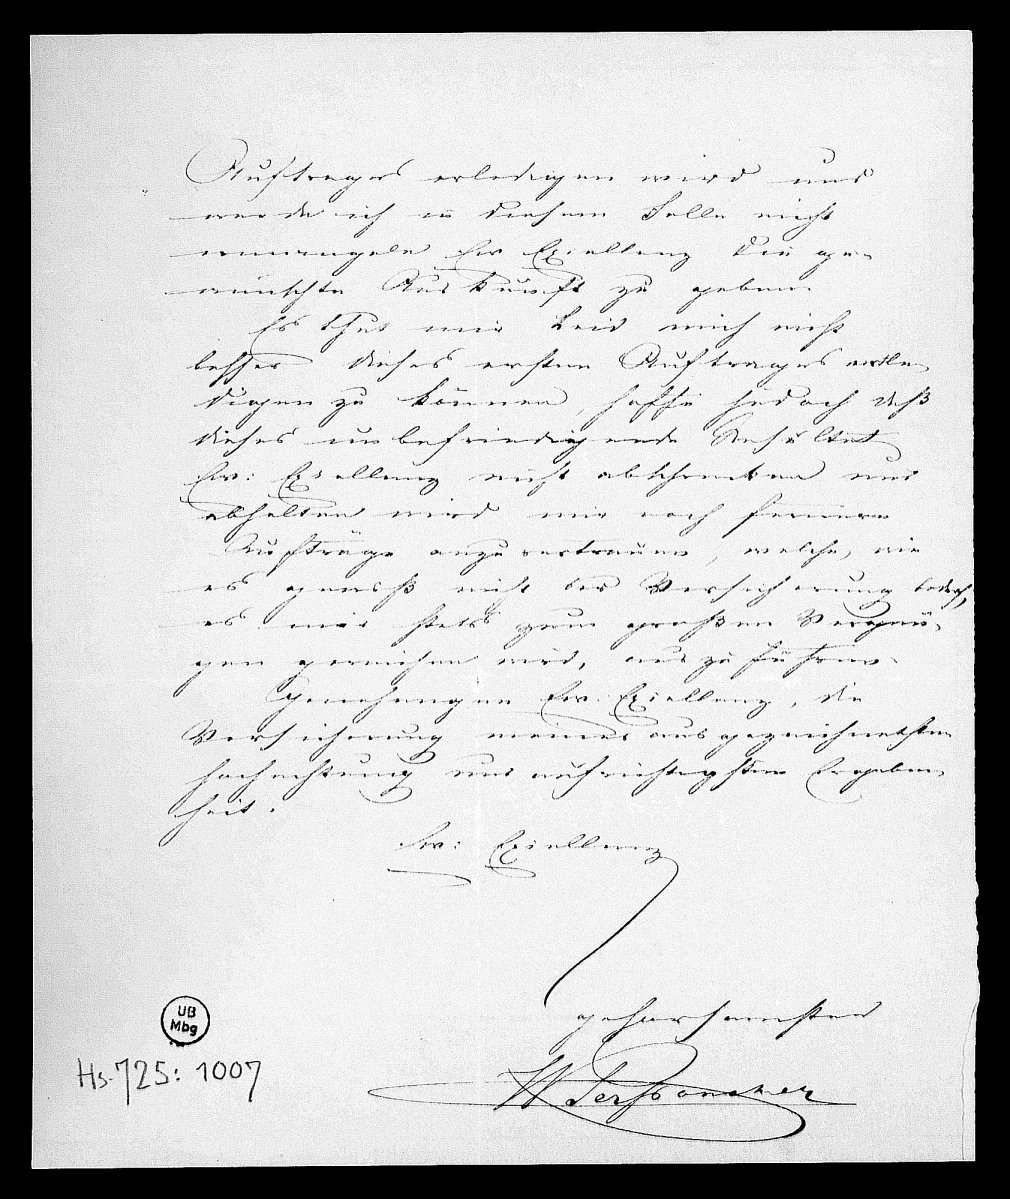 Auftrages erledigen wird und
werde ich in diesem Falle nicht
ermangeln Ew Exzellenz die ge-
wünschte Auskunft zu geben.
Es thut mir Leid mich nicht
besser dieses ersten Auftrages entle-
digen zu können, hoffe jedoch daß
dieses unbefriedigende Resultat
Ew: Exzellenz nicht abschrecken und
abhalten wird mir noch fernere
Aufträge anzuvertrauen, welche, wie
es gewiß nicht der Versicherung bedarf,
es mir stets zum großen Vergnü-
gen gereichen wird, auszuführen.
Genehmigen Ew. Exzellenz, die
Versicherung meiner ausgezeichnetsten
Hochachtung und aufrichtigsten Ergeben-
heit.
Ew: Exzellenz
gehorsamster
W
UB
Mbg
Hs. 725: 1007